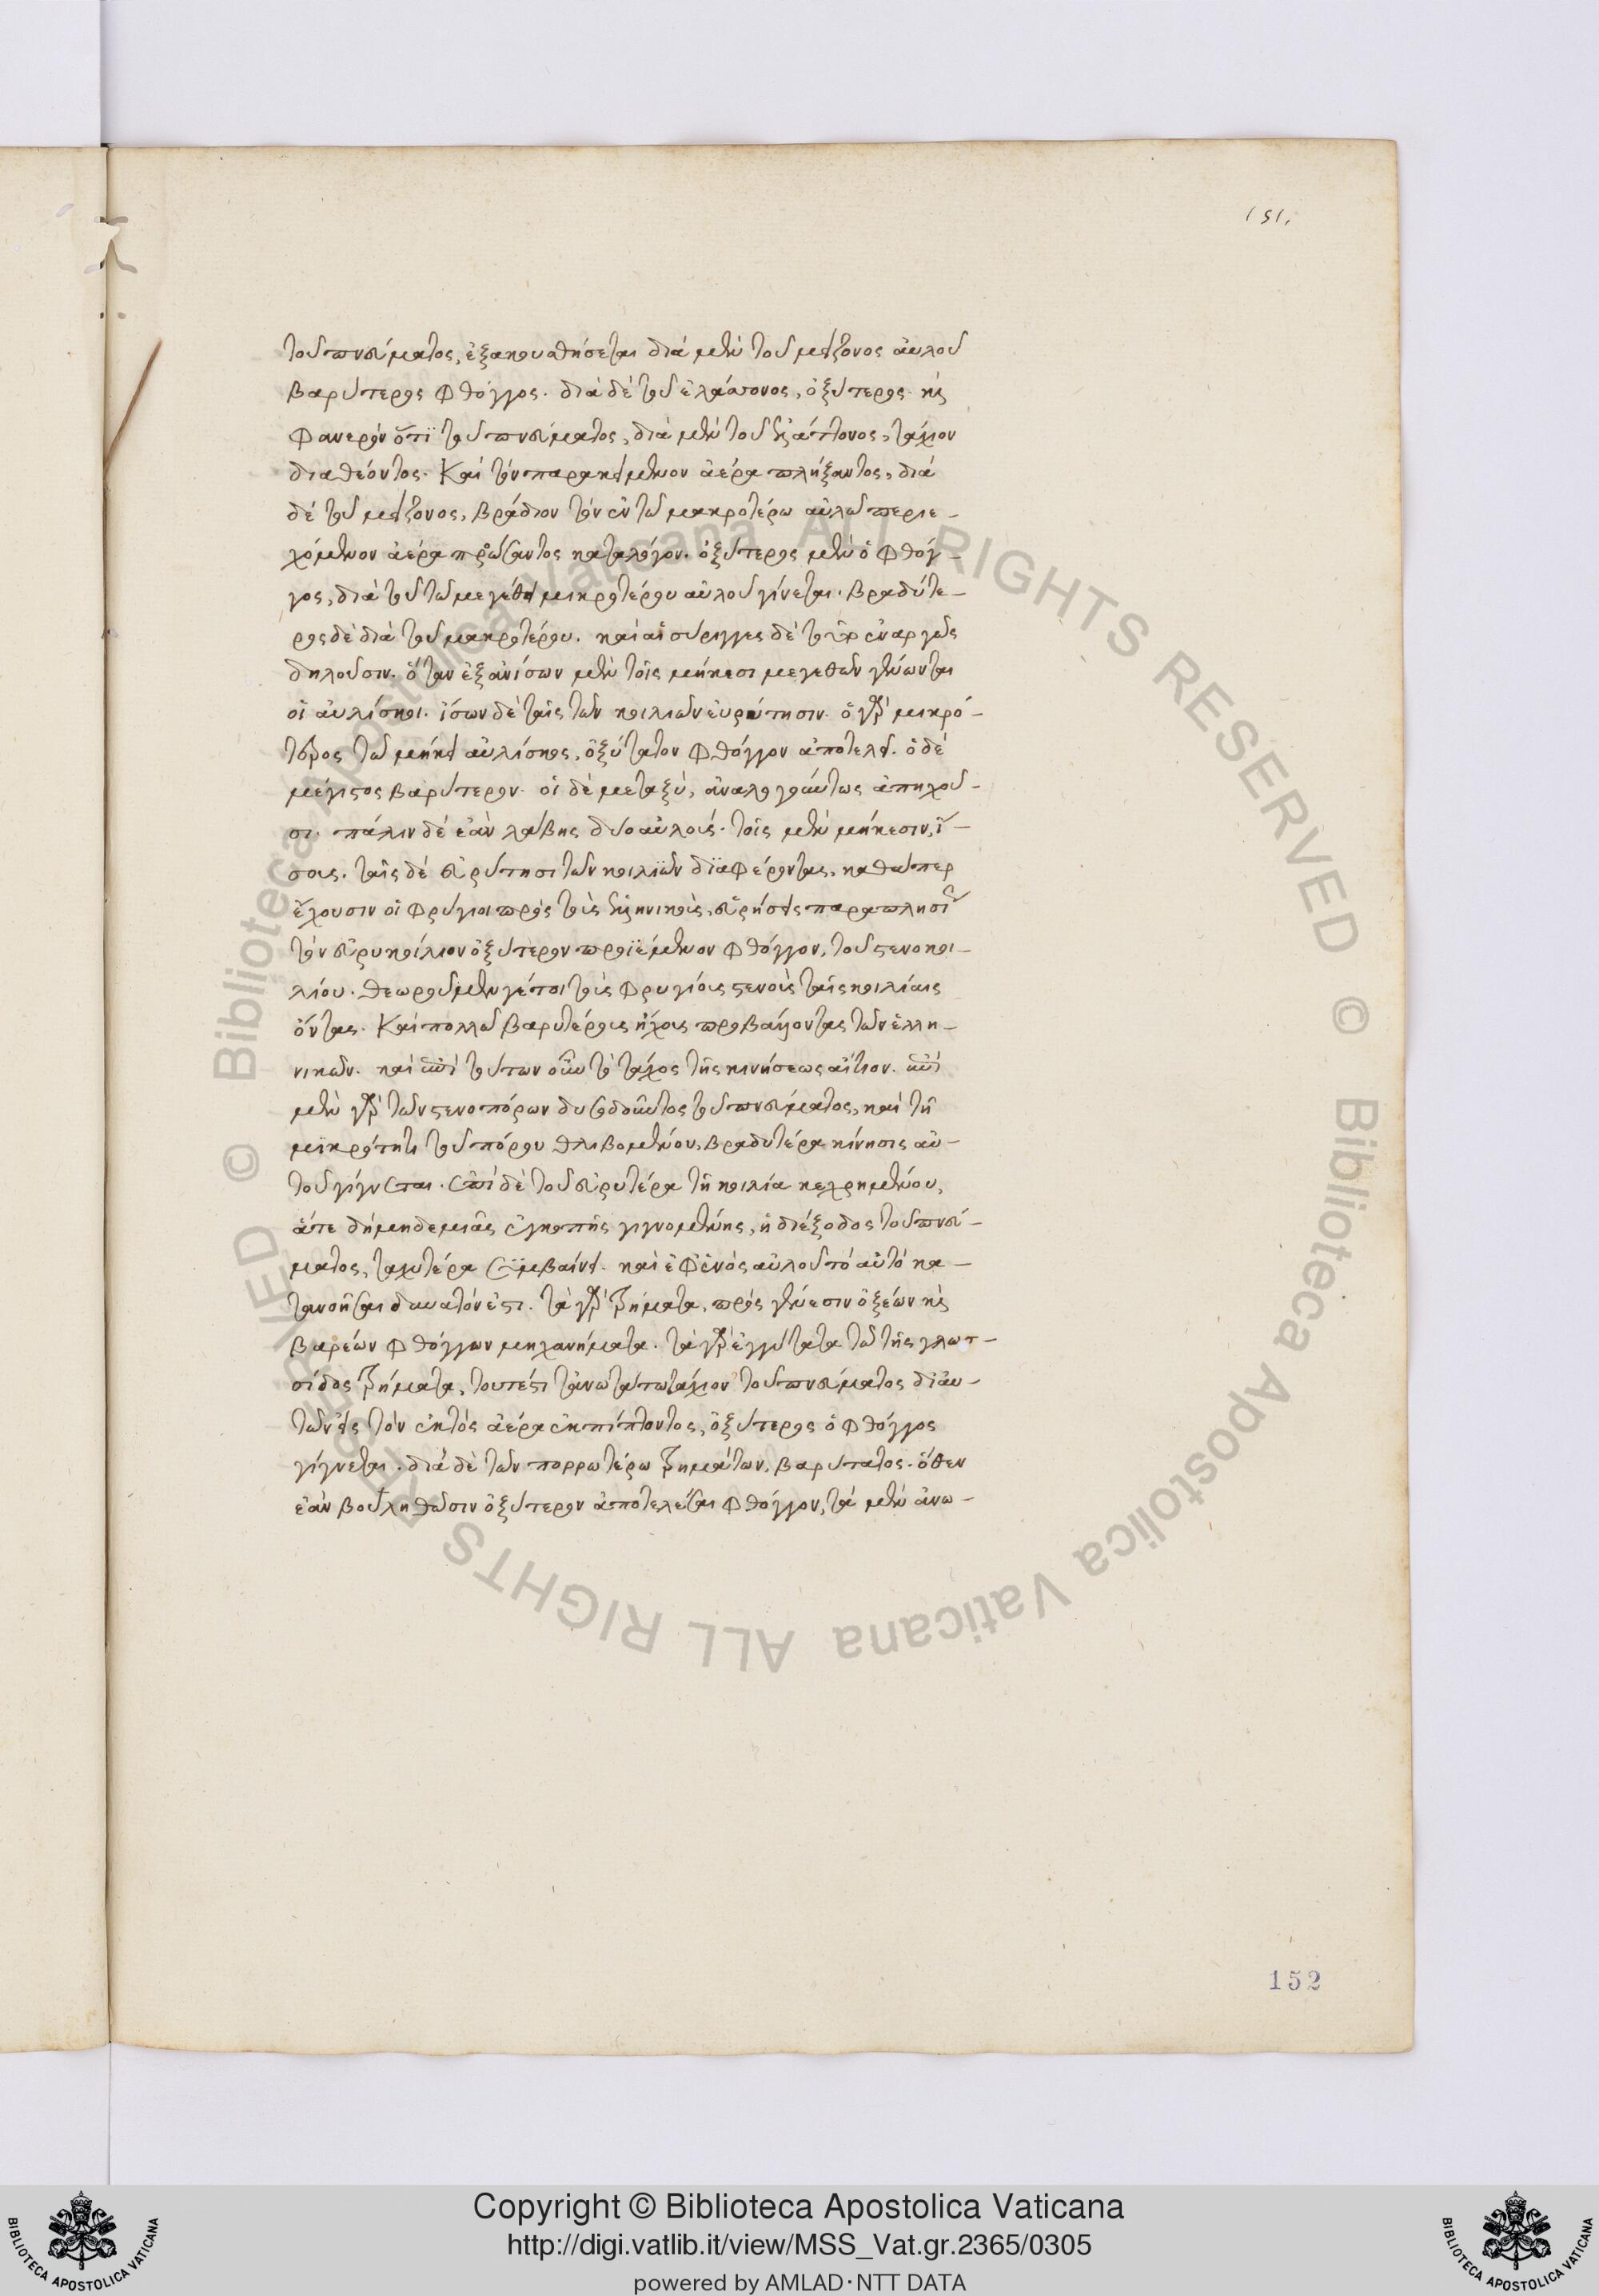 151.
τοῦ πνεύματος, ἐξακουσθήσεται διὰ μὲν τοῦ μείζονος αὐλοῦ
βαρύτερος φθόγγος. διὰ δὲ τοῦ ἐλάσσονος, ὀξύτερος. καὶ
φανερὸν ὅτι τοῦ πνεύματος, διὰ μὲν τοῦ ἐλάττονος, τάχιον
διαθέοντος. Καὶ τὸν παρακείμενον ἀέρα πλήξαντος, διὰ
δὲ τοῦ μείζονος, βράδιον τὸν ἐν τῷ μακροτέρω αὐλῷ περιε-
χόμενον ἀέρα πρώσαντος κατὰ λόγον. ὀξύτερος μὲν ὁ φθόγ-
γος, διὰ τοῦ τῷ μεγέθει μικροτέρου αὐλοῦ γίνεται. βραδύτε-
ρος δὲ διὰ τοῦ μακροτέρου. καὶ αἱ σύριγγες δὲ τοῦτο ἐναργῶς
δηλοῦσιν. ὅταν ἐξ ἀνίσων μὲν τοῖς μήκεσι μεγεθῶν γένωνται
οἱ αὐλίσκοι. ἴσων δὲ ταῖς τῶν κοιλιῶν εὐρύτησιν. ὁ γὰρ μικρό-
τερος τῷ μήκει αὐλίσκος, ὀξύτατον φθόγγον ἀποτελεῖ. ὁ δὲ
μέγιστος βαρύτερον. οἱ δὲ μεταξὺ, ἀναλόγως αὕτως ἀπηχοῦ-
σι. πάλιν δὲ ἐὰν λάβης δύο αὐλούς. τοῖς μὲν μήκεσιν, ἴ-
σους. ταῖς δὲ εὐρύτησι τῶν κοιλιῶν διαφέροντας, καθάπερ
ἔχουσιν οἱ φρύγιοι πρὸς τοὺς ἑλληνικοὺς, εὑρήσεις παραπλησίως
τὸν εὐρυκοίλιον ὀξύτερον προϊέμενον φθόγγον, τοῦ στενοκοι-
λίου. θεωροῦμεν γέτοι τοὺς φρυγίους στενοὺς ταῖς κοιλίαις
ὄντας. Καὶ πολλῷ βαρυτέρους ἤχους προβάλλοντας τῶν ἑλλη-
νικῶν. καὶ ἐπὶ τούτων οὖν τὸ τάχος τῆς κινήσεως αἴτιον. ἐπὶ
μὲν γὰρ τῶν στενοπόρων δυσοδοῦντος τοῦ πνεύματος, καὶ τῆ
μικρότητι τοῦ πόρου θλιβομένου, βραδυτέρα κίνησις αὐ-
τοῦ γίγνεται. ἐπὶ δὲ τοῦ εὐρυτέρα τῆ κοιλία κεχρημένου,
ἅτε δὴ μηδεμιᾶς ἐγκοπῆς γιγνομένης, ἡ διέξοδος τοῦ πνεύ-
ματος, ταχυτέρα συμβαίνει. καὶ ἐφ' ἑνὸς αὐλοῦ τὸ αὐτὸ κα-
τανοῆσαι δυνατόν ἐστι. τὰ γὰρ τρήματα, πρὸς γένεσιν ὀξέων καὶ
βαρέων φθόγγων μηχανήματα. τὰ γὰρ ἐγγύτατα τῷ τῆς γλωτ-
σίδος τρήματα, τουτέστι τἀνωτάτω τάχιον τοῦ πνεύματος δι' αὐ-
τῶν εἰς τὸν ἐκτὸς ἀέρα ἐκπίπτοντος, ὀξύτερος ὁ φθόγγος
γίγνεται. διὰ δὲ τῶν πορρωτέρω τρημάτων, βαρύτατος. ὅθεν
ἐὰν βουληθῶσιν ὀξύτερον ἀποτελέσαι φθόγγον, τὰ μὲν ἄνω-
152
© Biblioteca Apostolica Vaticana ALL RIGHTS RESERVED © Biblioteca Apostolica Vaticana ALL RIGHTS RESERVED
Copyright © Biblioteca Apostolica Vaticana
http://digi.vatlib.it/view/MSS_Vat.gr.2365/0305
powered by AMLAD·NTT DATA
BIBLIOTECA APOSTOLICA VATICANA
BIBLIOTECA APOSTOLICA VATICANA